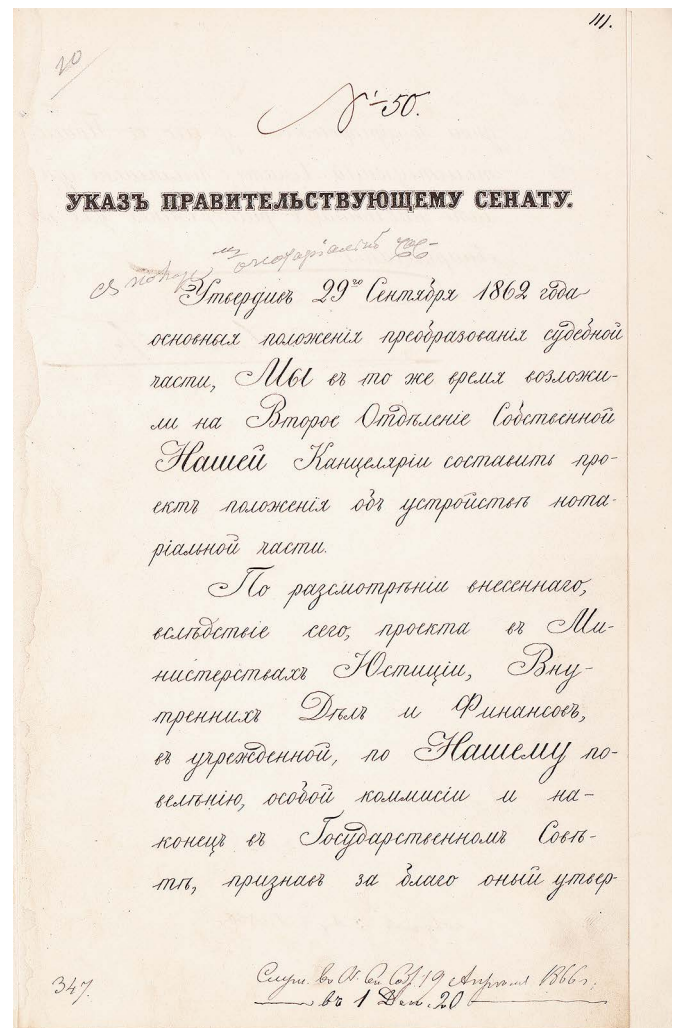 111.
20
№ 50.
УКАЗЪ ПРАВИТЕЛЬСТВУЮЩЕМУ СЕНАТУ.
Утвердивъ 29го Сентября 1862 года
основныя положенія преобразованія судебной
части, МЫ въ то же время возложи-
ли на Второе Отдѣленіе Собственной
НАШЕЙ Канцеляріи составить про-
ектъ положенія объ устройствѣ нота-
ріальной части.
По разсмотрѣніи внесеннаго,
вслѣдствіе сего, проекта въ Ми-
нистерствахъ Юстиціи, Вну-
треннихъ Дѣлъ и Финансовъ,
въ учрежденной, по НАШЕМУ по-
велѣнію, особой коммисіи и на-
конецъ въ Государственномъ Совѣ-
тѣ, признавъ за благо оный утвер-
19 Апрѣля 1866 г.
въ 1 Деп. 20
347.